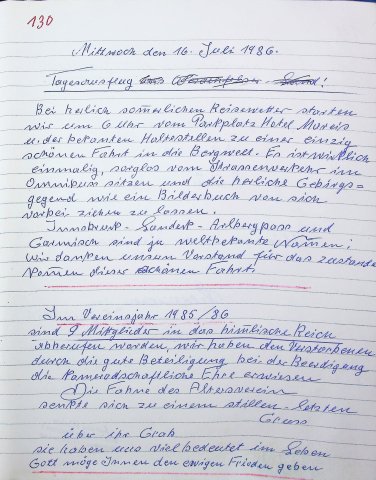 130
Mittwoch den 16. Juli 1986.
Tagesausflug
Bei herlich somerlichen Reisewetter starten
wir um 6 Uhr vom Parkplatz Hotel Mareis
u. der bekanten Haltestellen zu einer einzig
schönen Fahrt in die Bergwelt. Es ist wirklich
einmalig, sorglos vom Strassenverkehr im
Omnikus sitzen und die herliche Gebirgs=
gegend wie ein Bilderbuch von sich
vorbei ziehen zu lassen.
Innsbruck - Landeck - Arlbergpass und
Garmisch sind ja weltbekante Namen;
wir danken unsern Vorstand für das zustande
komen dieser schönen Fahrt.
Im Vereinsjahr 1985/86
sind 9 Mitglieder in das himlische Reich
abberufen worden, wir haben den Verstorbenen
durch die gute Beteiligung bei der Beerdigung
die kameradschaftliche Ehre erwiesen
Die Fahne des Altersverein
senkte sich zu einem stillen - letzten
Gruss
über ihr Grab
sie haben uns viel bedeutet im Leben
Gott möge Innen den ewigen Frieden geben